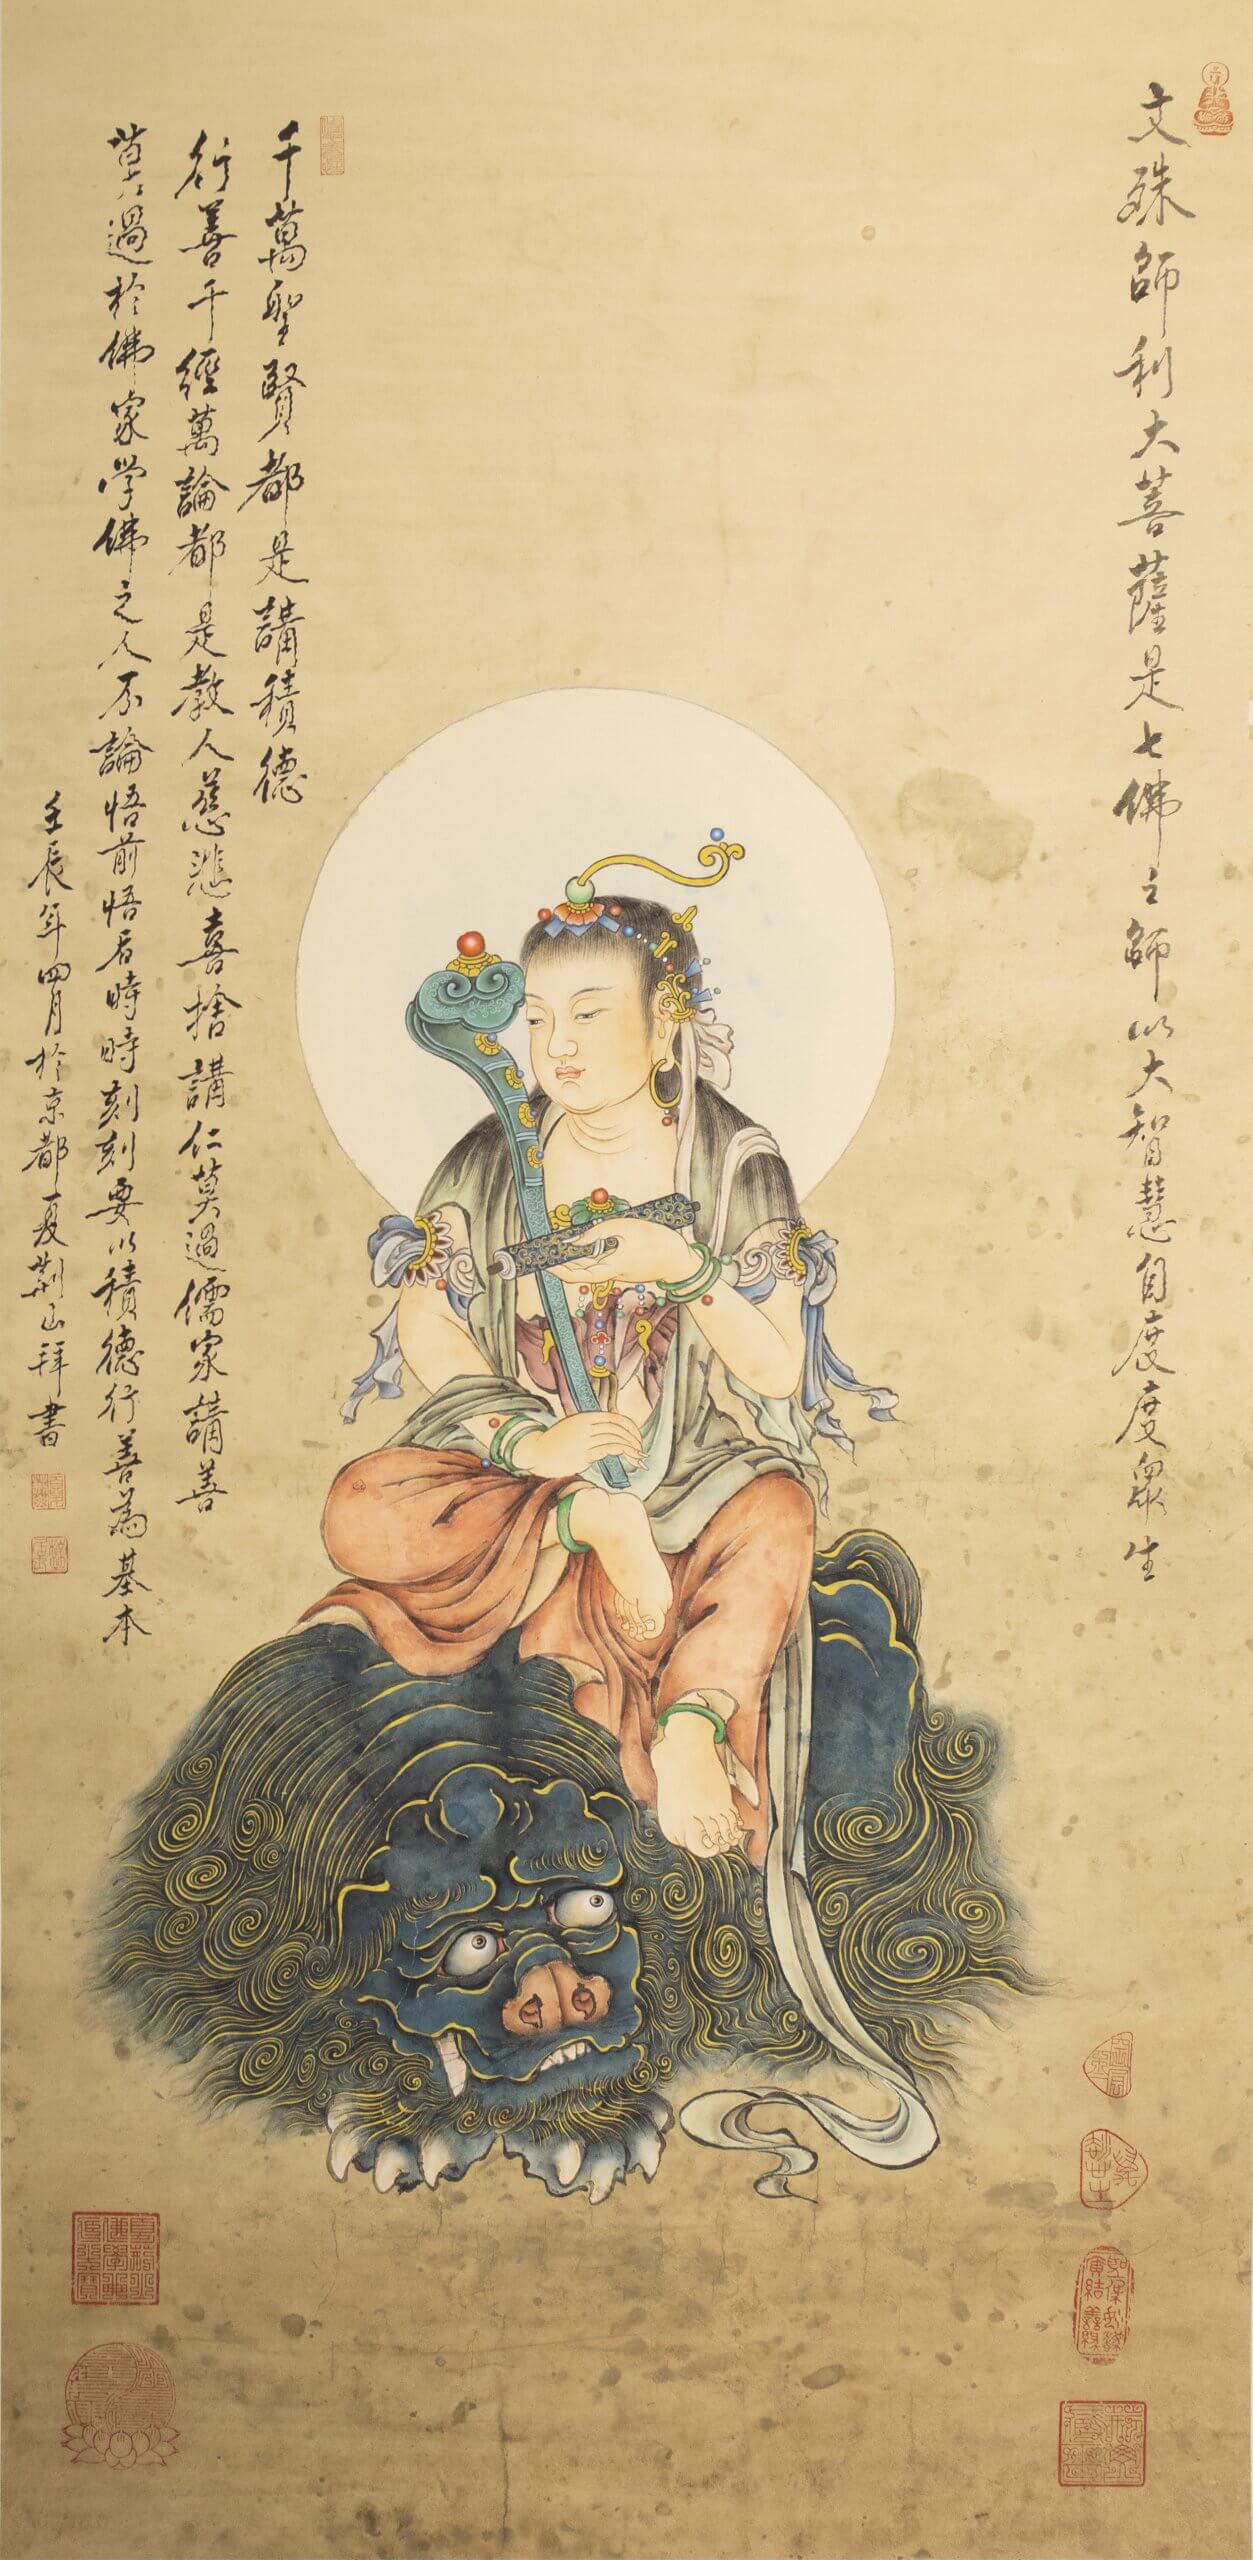 文殊師利大菩薩是七佛之師以大智慧自度度眾生
千萬聖賢都是講積德
行善千經萬論都是教人慈悲喜捨講仁莫過儒家講善
莫大過於佛家学佛之人不論悟前悟后時時刻刻要以積德行善為基本
壬辰年四月於京都夏荊山拜書